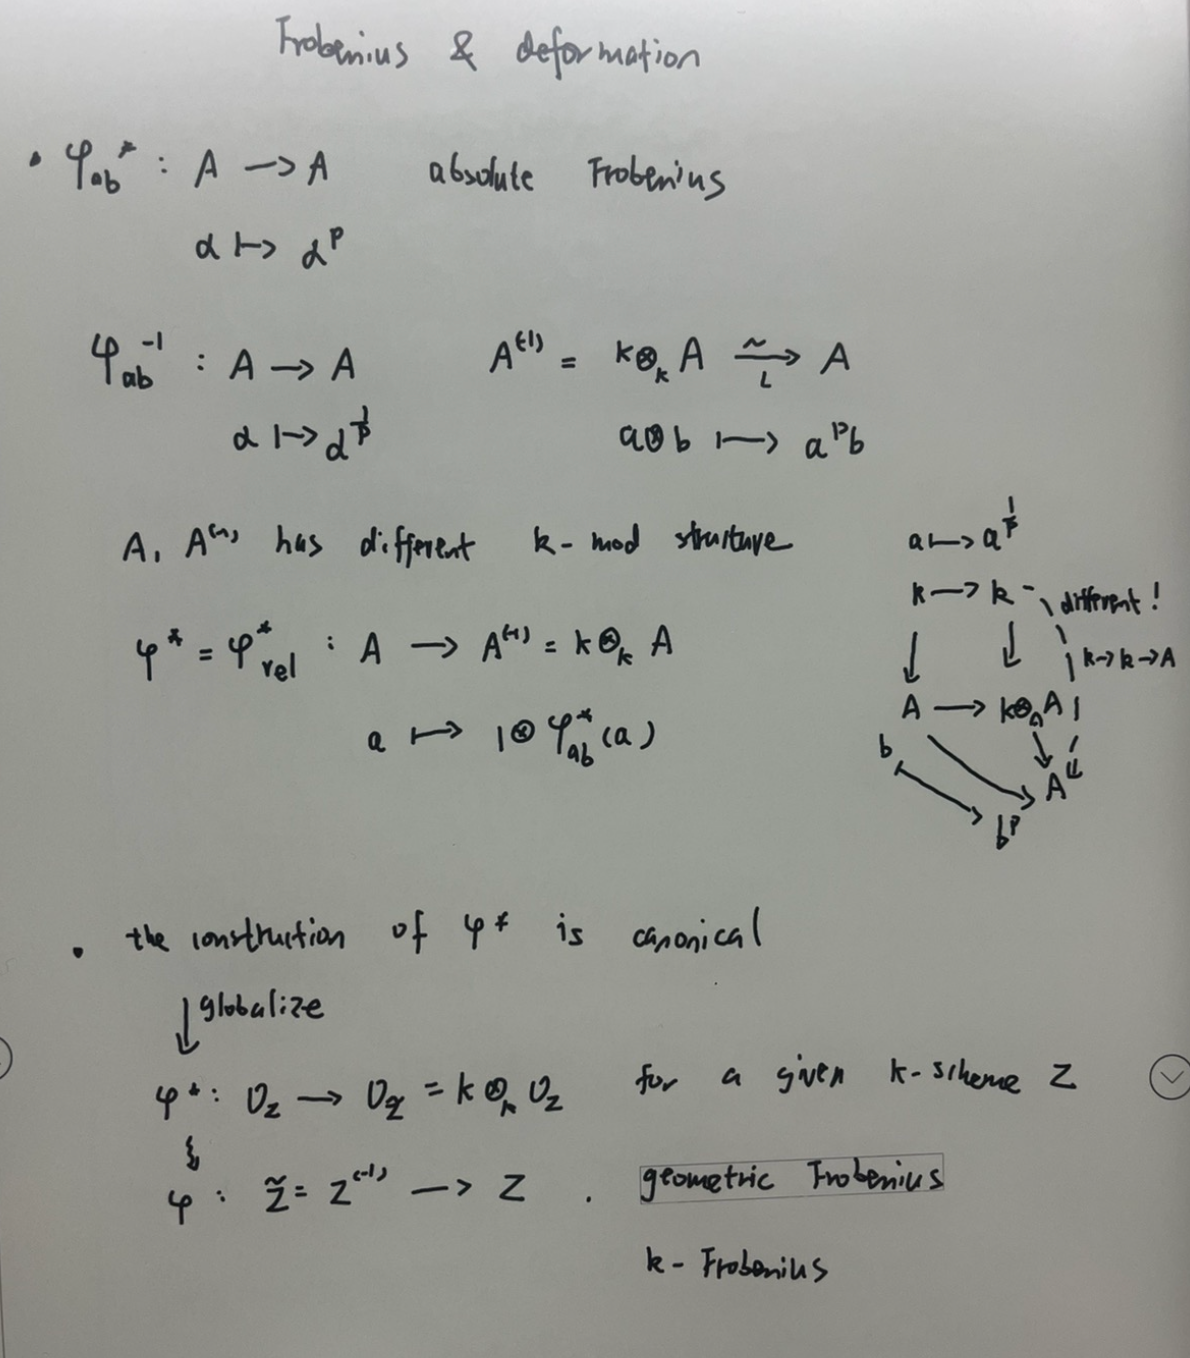 Frobenius & deformation
• φ_ab^* : A → A absolute Frobenius
α ↦ α^p
φ_ab^{-1} : A → A A^{(-1)} = k⊗_k A ~→_L A
α ↦ α^{1/p} a⊗b ↦ a^p b
A, A^{(-1)} has different k-mod structure
φ^* = φ^*_rel : A → A^{(-1)} = k⊗_k A
a ↦ 1⊗φ^*_ab(a)
a ↦ a^{1/p}
k → k different!
↓ ↓ k→k→A
A → k⊗_A A
b A
b^p
• the construction of φ^* is canonical
↓ globalize
φ^* : O_Z → O_Z̃ = k⊗_k O_Z for a given k-scheme Z
φ : Z̃ = Z^{(-1)} → Z . geometric Frobenius
k- Frobenius